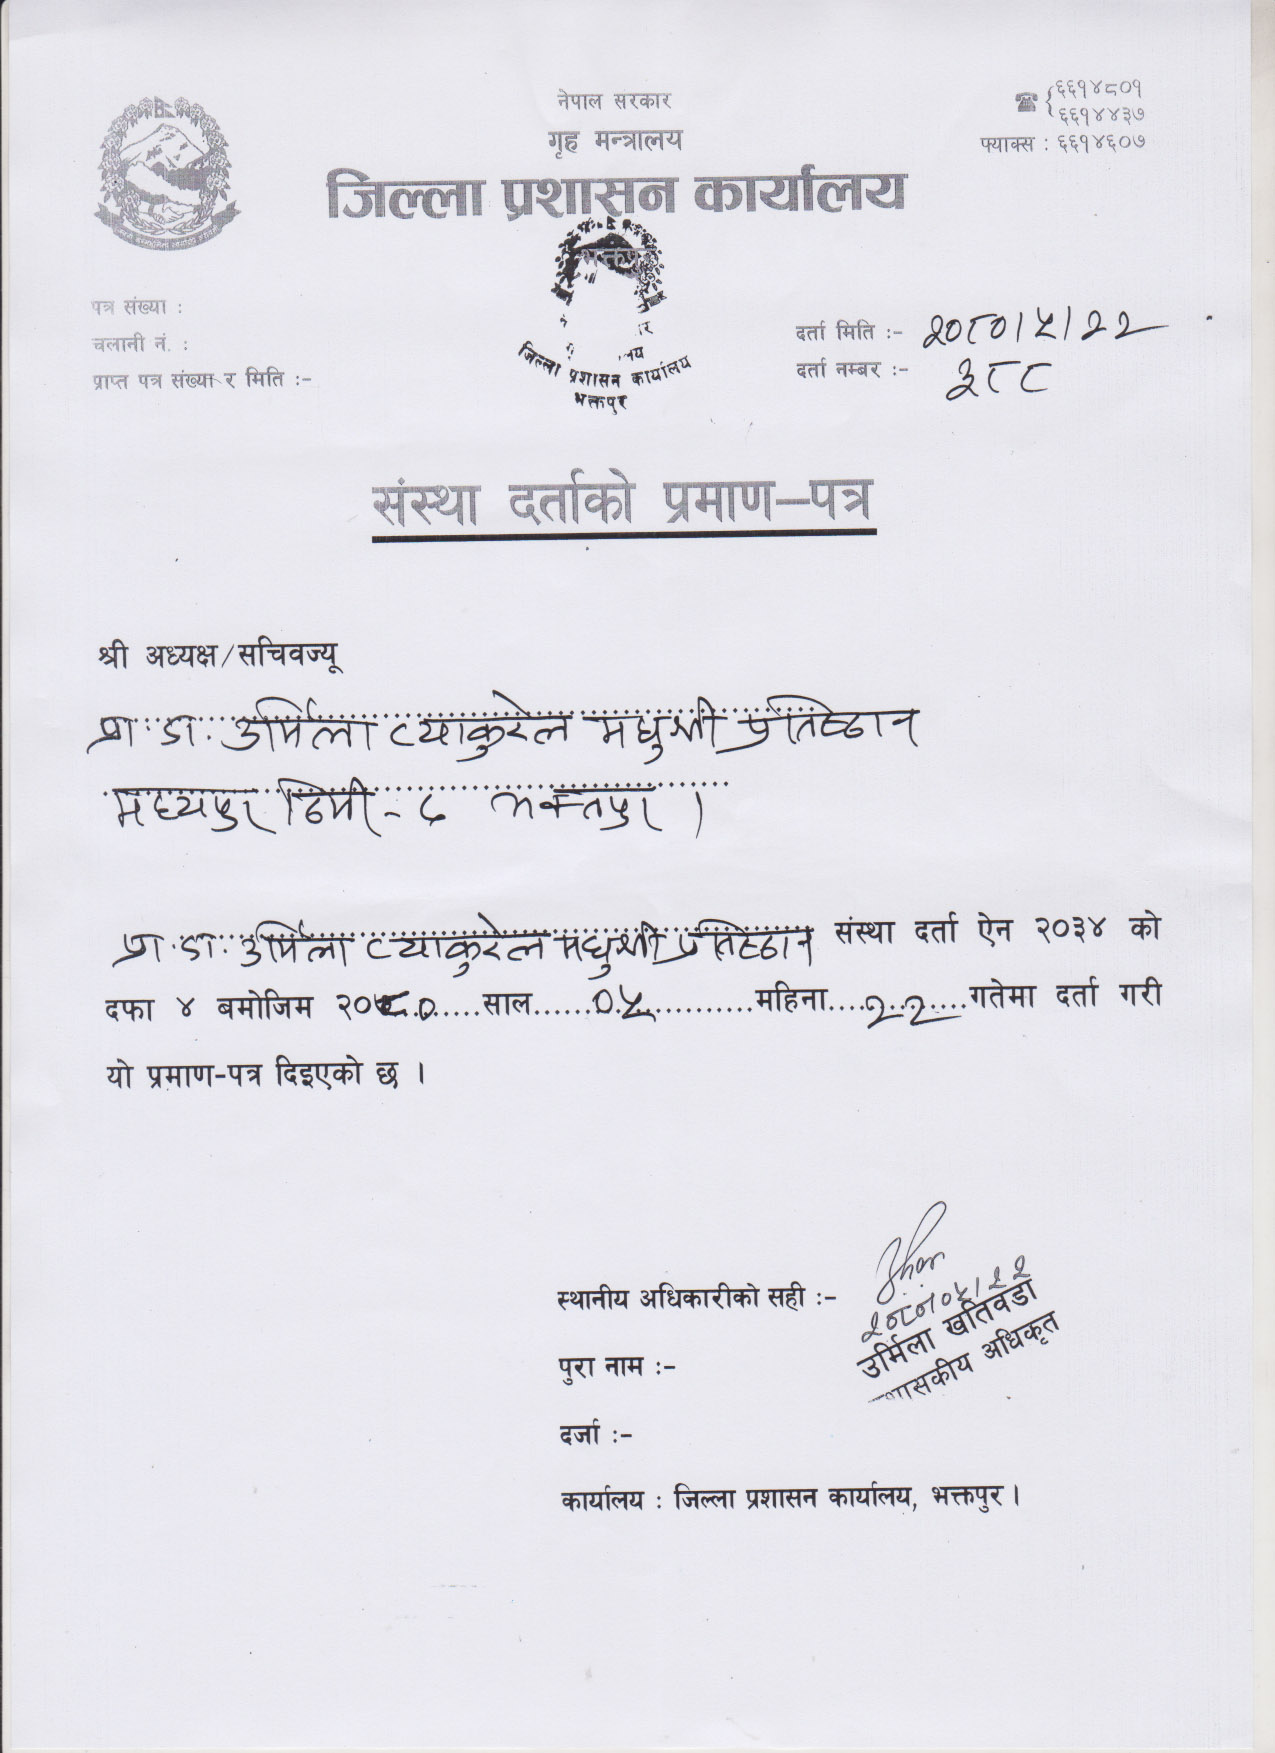 नेपाल सरकार
गृह मन्त्रालय
जिल्ला प्रशासन कार्यालय
भक्तपुर
६६१४८०१
६६१४४३७
फ्याक्स : ६६१४६०७
जिल्ला प्रशासन कार्यालय
भक्तपुर
पत्र संख्या :
चलानी नं. :
प्राप्त पत्र संख्या र मिति :-
दर्ता मिति :- २०८०।५।२२
दर्ता नम्बर :- ३८८
संस्था दर्ताको प्रमाण-पत्र
श्री अध्यक्ष/सचिवज्यू
प्रा. डा. उर्मिला त्याकुरेल मधुश्री प्रतिष्ठान
मध्यपुर ठिमी - ८ भक्तपुर ।
प्रा. डा. उर्मिला त्याकुरेल मधुश्री प्रतिष्ठान संस्था दर्ता ऐन २०३४ को
दफा ४ बमोजिम २०८०.....साल......०५...........महिना....२२....गतेमा दर्ता गरी
यो प्रमाण-पत्र दिइएको छ ।
स्थानीय अधिकारीको सही :-
२०८०।०५।२२
उर्मिला खतिवडा
शासकीय अधिकृत
पुरा नाम :-
दर्जा :-
कार्यालय : जिल्ला प्रशासन कार्यालय, भक्तपुर ।